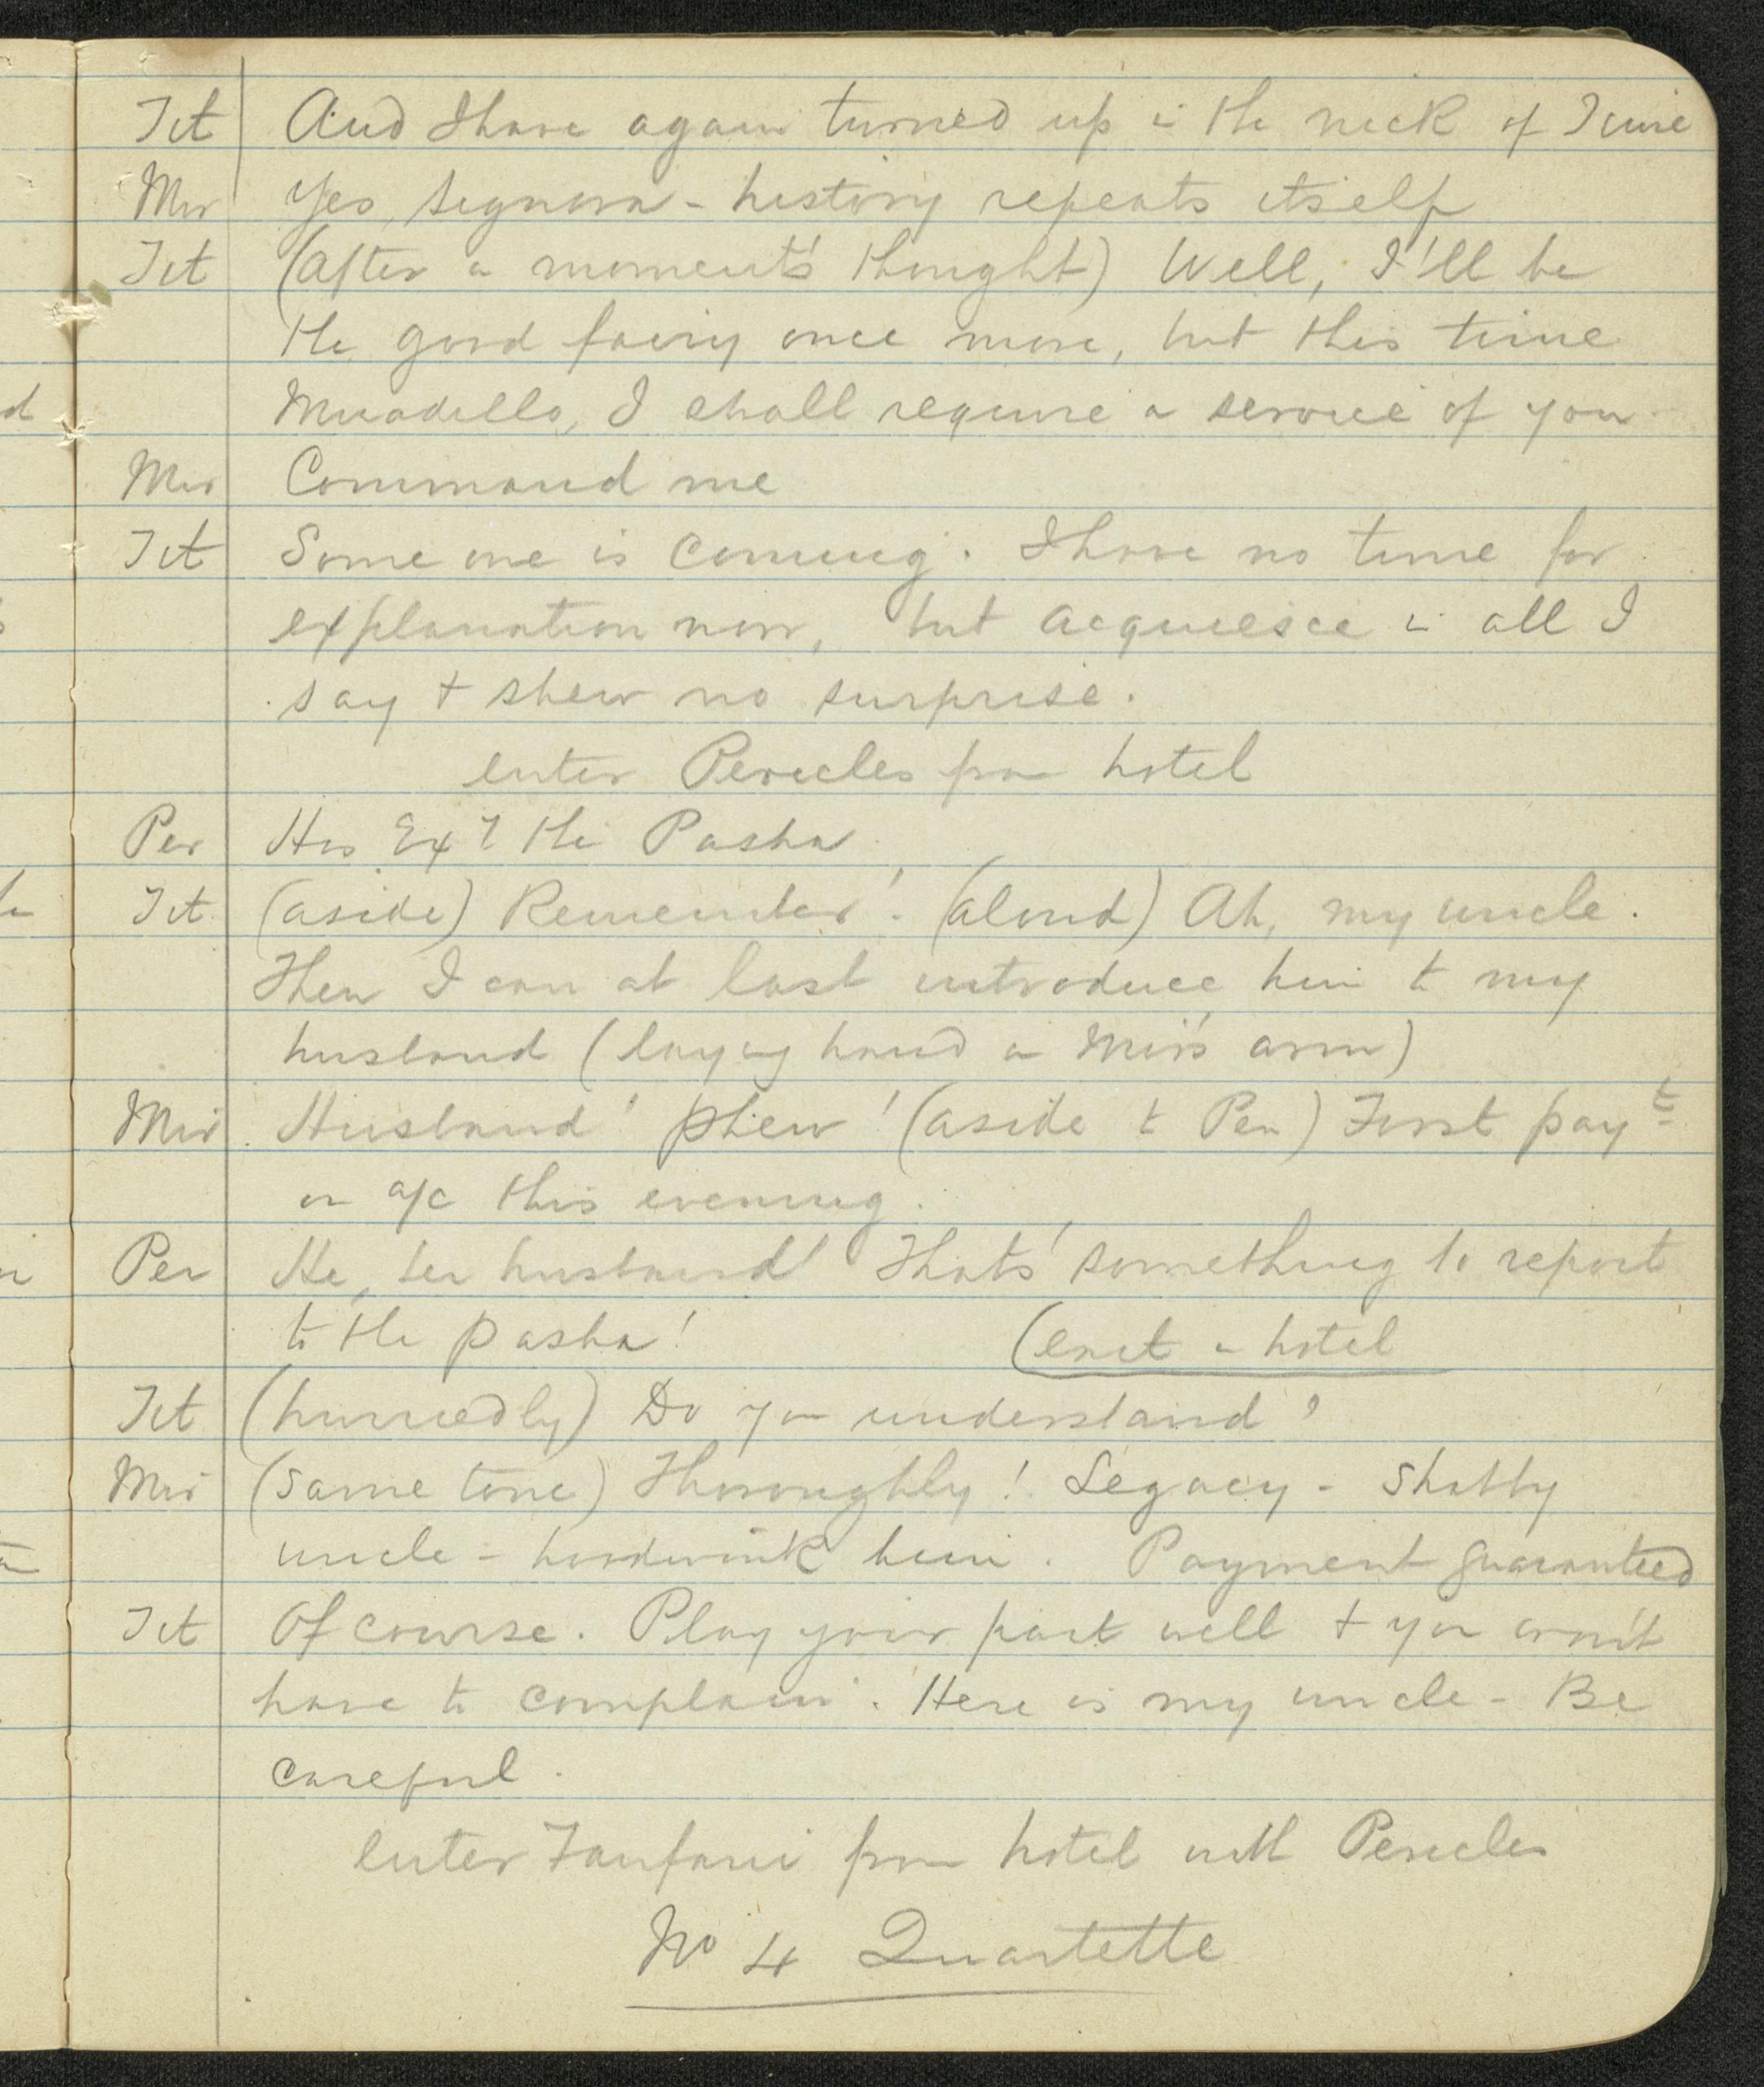 Tit And I have again turned up in the nick of time
Mir Yes, Signora - history repeats itself
Tit (after a moment's thought) Well, I'll be
the good fairy once more, but this time
Miradillo, I shall require a service of you
Mir Command me
Tit Some one is coming. I have no time for
explanation now, but acquiesce in all I
say + shew no surprise.
enter Pericles from hotel
Per His Exy the Pasha
Tit (aside) Remember! (aloud) Ah, my uncle.
Then I can at last introduce him to my
husband (laying hand on Mir's arm)
Mir Husband! phew! (aside to Per) First payt
on a/c this evening.
Per He, her husband! That's something to report
to the Pasha! (exit in hotel
Tit (hurriedly) Do you understand?
Mir (same tone) Thoroughly! Legacy - Shabby
uncle - hoodwink him. Payment guaranteed
Tit Of course. Play your part well + you won't
have to complain. Here is my uncle - Be
careful.
enter Fanfani from hotel with Pericles
No 4 Quartette